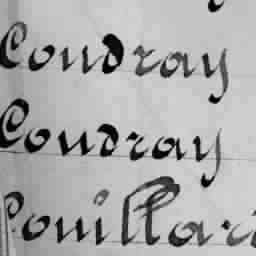 Coudray
Coudray
Couillard